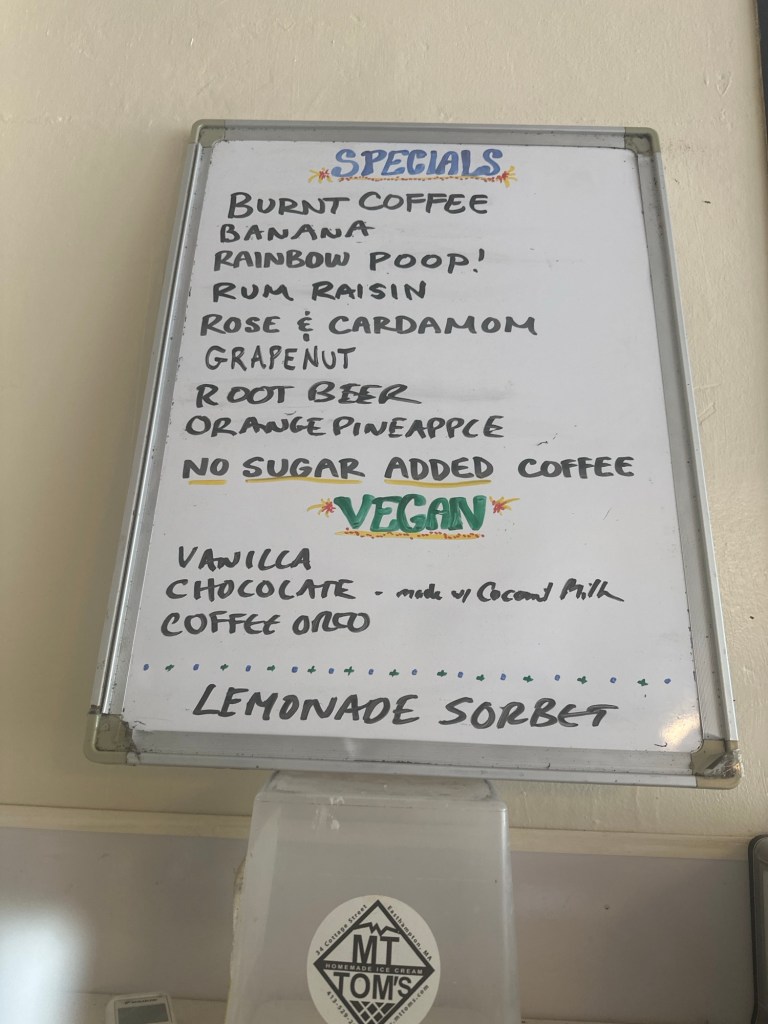 SPECIALS
BURNT COFFEE
BANANA
RAINBOW POOP!
RUM RAISIN
ROSE & CARDAMOM
GRAPENUT
ROOT BEER
ORANGE PINEAPPLE
NO SUGAR ADDED COFFEE
VEGAN
VANILLA
CHOCOLATE - made w/ Coconut Milk
COFFEE OREO
LEMONADE SORBET
34 Cottage Street Easthampton, MA
MT
HOMEMADE ICE CREAM
TOM'S